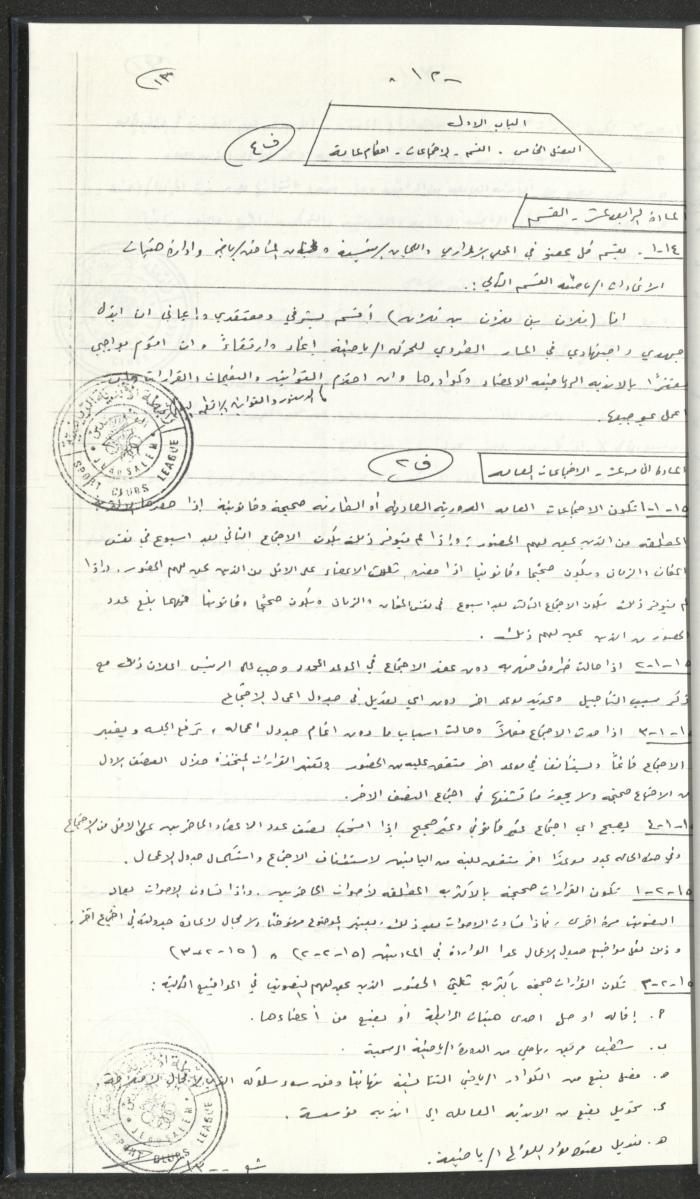 - ١٢ -
١٣
الباب الاول
الفصل الخامس . القسم - الاجتماعات - احكام عامة
ف٤
المادة الرابعة عشرة - القسم
١٤-١. يقسم كل عضو في المجلس الاداري واللجان الرئيسية ولجنان المناطق الرياضية وادارة هيئات
الاتحادات الرياضية القسم التالي :.
انا (فلان بن فلان بن فلان) أقسم بشرفي ومعتقدي وايماني ان ابذل
جهدي واجتهادي في المسار الطردي للحركة الرياضية اعداد وارتقاءً وان اقوم بواجبي
معتزًا بالاندية الرياضية الاعضاء وكوادرها وان احترم القوانين والتعليمات والقرارات وان
الدستور والقوانين
اعمل بموجبها.
المادة الخامسة عشرة - الاجتماعات العامة
ف٢
١٥-١-١ تكون الاجتماعات العامة الدورية العادية أو الطارئة صحيحة وقانونية إذا حضرها الاكثرية
المطلقة من الذين يحق لهم الحضور؛ وإذا لم يتوفر ذلك يكون الاجتماع الثاني بعد اسبوع في نفس
المكان والزمان ويكون صحيحًا وقانونيا اذا حضره ثلث الاعضاء على الاقل من الذين يحق لهم الحضور. واذا
لم يتوفر ذلك يكون الاجتماع الثالث بعد اسبوع في نفس المكان والزمان ويكون صحيحًا وقانونيا مهما بلغ عدد
الحضور من الذين يحق لهم ذلك.
١٥-١-٢ اذا حالت ظروف قهرية دون عقد الاجتماع في الموعد المحدد وجب على الرئيس اعلان ذلك مع
ذكر سبب التأجيل وتحديد موعد اخر دون اي تعديل في جدول اعمال الاجتماع
١٥-١-٣ اذا حدث الاجتماع فعلاً وحالت اسباب ما دون اتمام جدول اعماله، ترفع الجلسة ويعتبر
الاجتماع قائمًا ويستأنف في موعد اخر متفق عليه من الحضور وتعتبر القرارات المتخذة خلال النصف الاول
من الاجتماع صحيحة ولا يجوز مناقشتها في اجتماع النصف الاخر.
١٥-١-٤ يصبح اي اجتماع غير قانوني وغير صحيح اذا انسحب نصف عدد الاعضاء الحاضرين على الاقل من الاجتماع
وفي هذه الحالة يحدد موعدًا اخر متفق عليه من الباقين لاستئناف الاجتماع واستكمال جدول الاعمال.
١٥-٢-١ تكون القرارات صحيحة بالاكثرية المطلقة لأصوات الحاضرين. واذا تساوت الاصوات يعاد
التصويت مرة اخرى، فاذا تساوت الاصوات بعد ذلك، يعتبر الموضوع مرفوضًا ولا مجال لاعادة جدولته في اجتماع آخر.
وذلك لكل مواضيع جدول الاعمال عدا الواردة في المادتين (١٥-٢-٢) و (١٥-٢-٣)
١٥-٢-٢ تكون القرارات صحيحة بأكثرية ثلثي الحضور الذين يحق لهم التصويت في المواضيع التالية:
أ. إقالة او حل احدى هيئات الرابطة أو بضع من أعضاءها.
ب. شطب فريق رياضي من الدورة الرياضية الرسمية.
ج. فصل بضع من الكوادر الرياضي التنافسية نهائيًا
د. تحويل بضع من الاندية العاملة الى اندية مؤسسة.
هـ. تعديل بعض مواد اللوائح الرياضية.
JERUSALEM
SPORT CLUBS LEAGUE
JERUSALEM
SPORT CLUBS LEAGUE